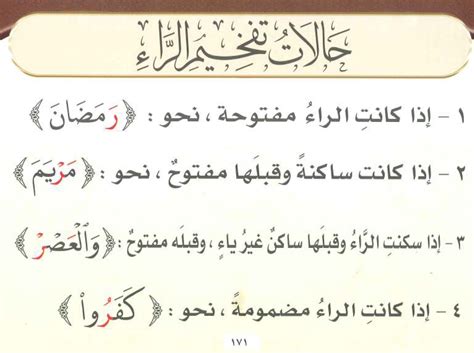 حَالَاتُ تَفْخِيمِ الرَّاءِ
١ - إذا كانتِ الراءُ مفتوحة ، نحو : ﴿ رَمَضَانَ ﴾
٢ - إذا كانت ساكنةً وقبلَها مفتوحٌ ، نحو : ﴿ مَرْيَمَ ﴾
٣ - إذا سكنتِ الرَّاءُ وقبلَها ساكنٌ غيرُ ياءٍ ، وقبلَه مفتوحٌ : ﴿ وَالْعَصْرْ ﴾
٤ - إذا كانَتِ الراءُ مضمومةً ، نحو : ﴿ كَفَرُواْ ﴾
١٧١